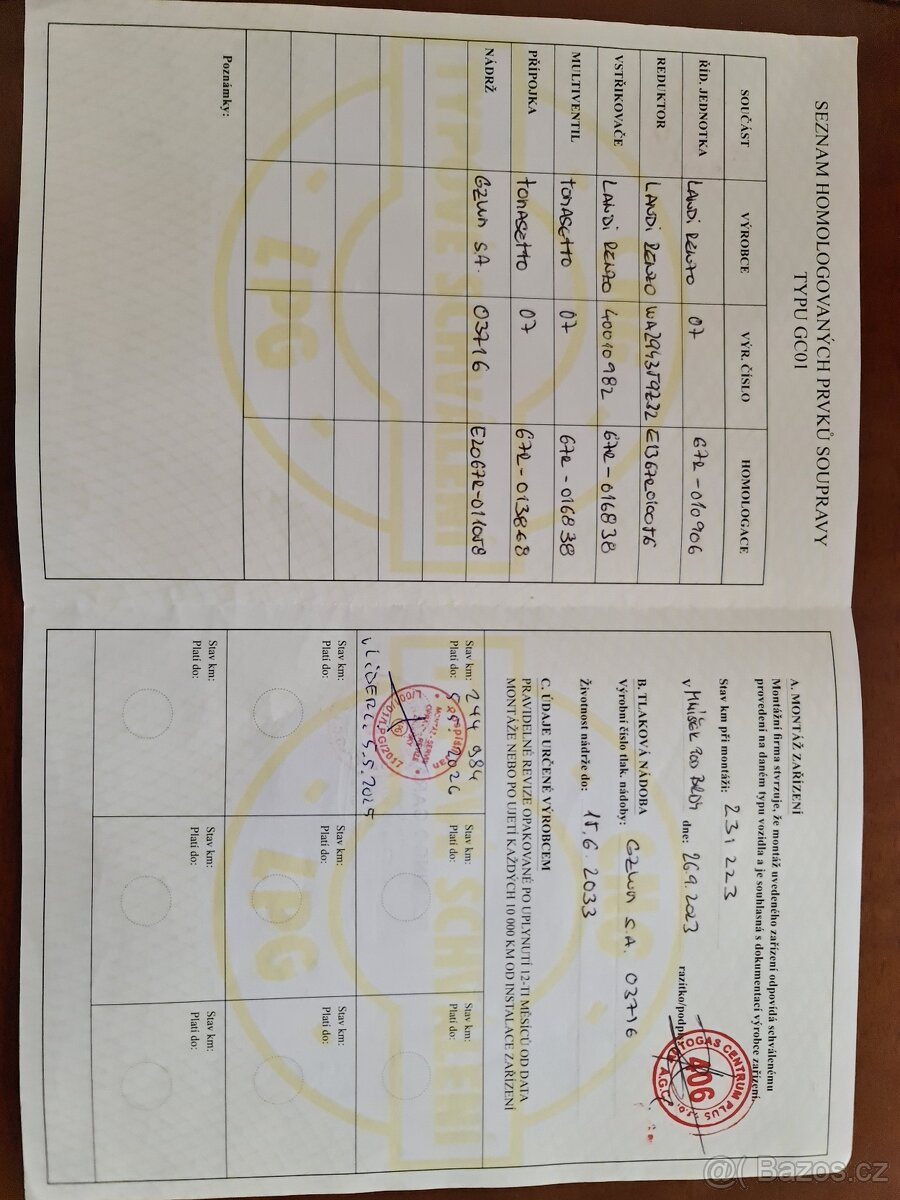 SEZNAM HOMOLOGOVANÝCH PRVKŮ SOUPRAVY
TYPU GC01
SOUČÁST VÝROBCE VÝR. ČÍSLO HOMOLOGACE
ŘÍD. JEDNOTKA LANDI RENZO 07 67R-010906
REDUKTOR LANDI RENZO
VSTŘIKOVAČE LANDI RENZO 40010982 67R-016838
MULTIVENTIL TOMASETTO 07 67R-016838
PŘÍPOJKA TOMASETTO 07
NÁDRŽ GZWM S.A. 03716
Poznámky:
TYPOVÉ SCHVÁLENÍ
LPG
CNG
A. MONTÁŽ ZAŘÍZENÍ
Montážní firma stvrzuje, že montáž uvedeného zařízení odpovídá schválenému
provedení na daném typu vozidla a je souhlasná s dokumentací výrobce zařízení.
Stav km při montáži: 231 223
v MNÍŠEK POD BRDY dne: 26.9.2023 razítko/podpis
AUTOGAS CENTRUM PLUS s.r.o.
406
A.G.C.
B. TLAKOVÁ NÁDOBA
Výrobní číslo tlak. nádoby: GZWM S.A. 03716
Životnost nádrže do: 15.6.2033
C. ÚDAJE URČENÉ VÝROBCEM
PRAVIDELNÉ REVIZE OPAKOVANÉ PO UPLYNUTÍ 12-TI MĚSÍCŮ OD DATA
MONTÁŽE NEBO PO UJETÍ KAŽDÝCH 10 000 KM OD INSTALACE ZAŘÍZENÍ
Stav km: 244 984 Stav km: Stav km:
Platí do: 5.5.2026 Platí do: Platí do:
V LIBERCI 5.5.2025
Stav km: Stav km: Stav km:
Platí do: Platí do: Platí do:
Stav km: Stav km: Stav km:
Platí do: Platí do: Platí do:
CNG
SCHVÁLENÍ
LPG
@ Bazos.cz